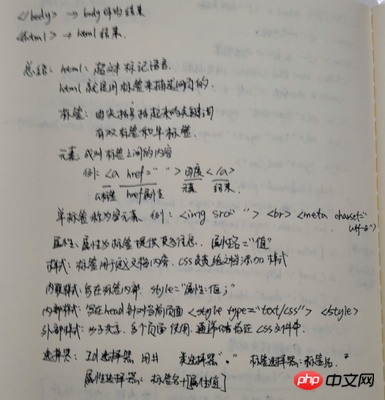 </body> → body 结束
</html> → html 结束.
总结: html: 超文本标记语言.
html 就是用标签来描述网页的.
标签: 由尖括号括起来的关键词
有双标签和单标签.
元素 成对标签之间的内容
例: <a href=" "> 百度 </a>
a标签 href属性 元素 结束.
单标签称为空元素. 例: <img src=" "> <br> <meta charset="utf-8">
属性: 属性为标签提供更多信息. 属性名="值"
样式: 标签用于定义文档内容. CSS 给文档添加样式
内联样式: 写在标签内部. style="属性: 值;"
内部样式: 写在head 针对当前页面 <style type="text/css"> <style>
外部样式: 多个页面使用. 在 CSS 文件中.
选择器: Id 选择器 用# 类选择器 "." 标签选择器: 标签名.
属性选择器: 标签名+[属性值]
php 中文网